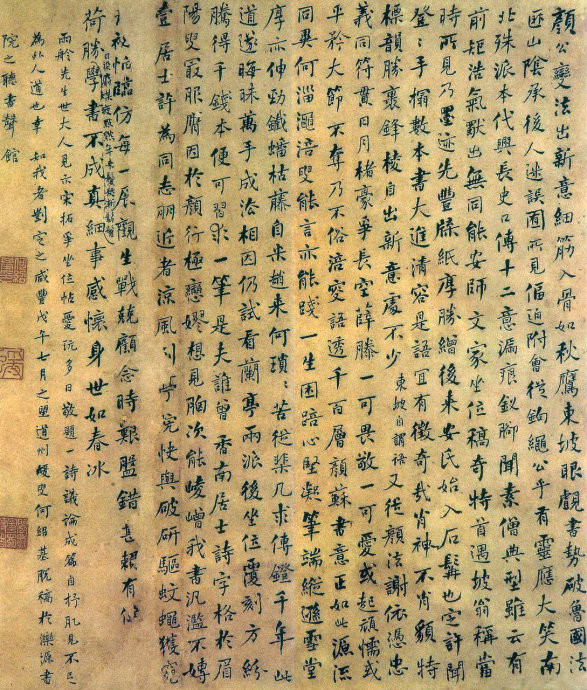 顏公變法出新意細筋入骨如秋鷹東坡眼覷書勢破魯國法
匪山陰承後人逃誤面所見偪迫附會從鉤繩公乎有靈應大笑南
北殊派本代興長史口傳十二意漏痕釵腳聞素僧典型雖云有
前矩浩氣獸出無同能安師文家坐位稿奇特首遇坡翁稱當
時所見乃墨迹先豐縢紙厚勝繒後來安氏始入石也定許聞
登〻手搨數本書大進清容是語宜有徵奇哉肖神不肖貌特
標韻勝裹鋒棱自出新意處不少 東坡自謂語 又從顏法謝依憑忠
義同符貫日月楮豪爭長空薛滕一可畏敬一可愛或起頑懦或
平矜大節不奪乃不俗涪叟語透千百層顏蘇書意正如此源流
同異何淄澠涪叟能言亦能踐一生困踣心堅凝筆端縱遜雪堂
厚亦伸勁鐵蟠枯藤自米趙來何瑣〻苦從棐几求傳鐙千年此
道遂晦昧萬手成沿相因仍試看蘭亭兩派後坐位覆刻方紛
騰得千錢本便可習求一筆是夫誰曾香南居士詩字格於眉
陽叟最服膺因於顏行極戀嫪想見胸次能崚嶒我書汎濫不專
壹居士許為同志朋近者涼風引快與破研驅蚊蠅獲窺
秘怡臨仿每一展觀生戰兢顧念時艱盤錯甚賴有似
荷勝學書不成真細事感懷身世如春冰
雨舲先生世大人見示宋拓爭坐位帖愛玩多日敬題一詩議論成篇自抒肊見不足
為外人道也幸 如我者劃定之咸豐戊午七月之朢道州蝯叟何紹基脫稿於濼源書
院之聽書聲館